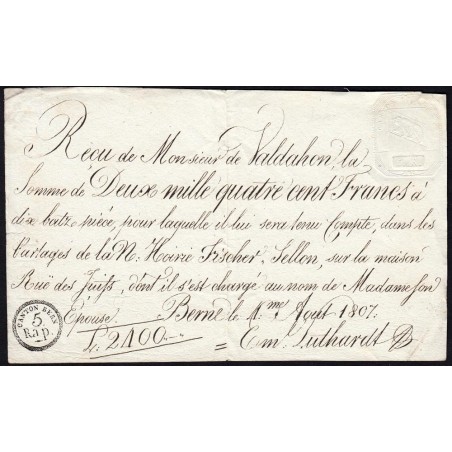 Reçu de Monsieur de Valdahon, la
Somme de Deux mille quatre cent Francs à
dix batz pièce, pour laquelle il lui sera tenu Compte, dans les
Partages de la N. Hoirie Fischer, Sellon, sur la maison
Ruë des Juifs, dont il s'est chargé au nom de Madame son
Epouse. Berne le 1.me Aout 1807.
L. 2400
= Em. Luthardt
CANTON BERN
5
Rap.